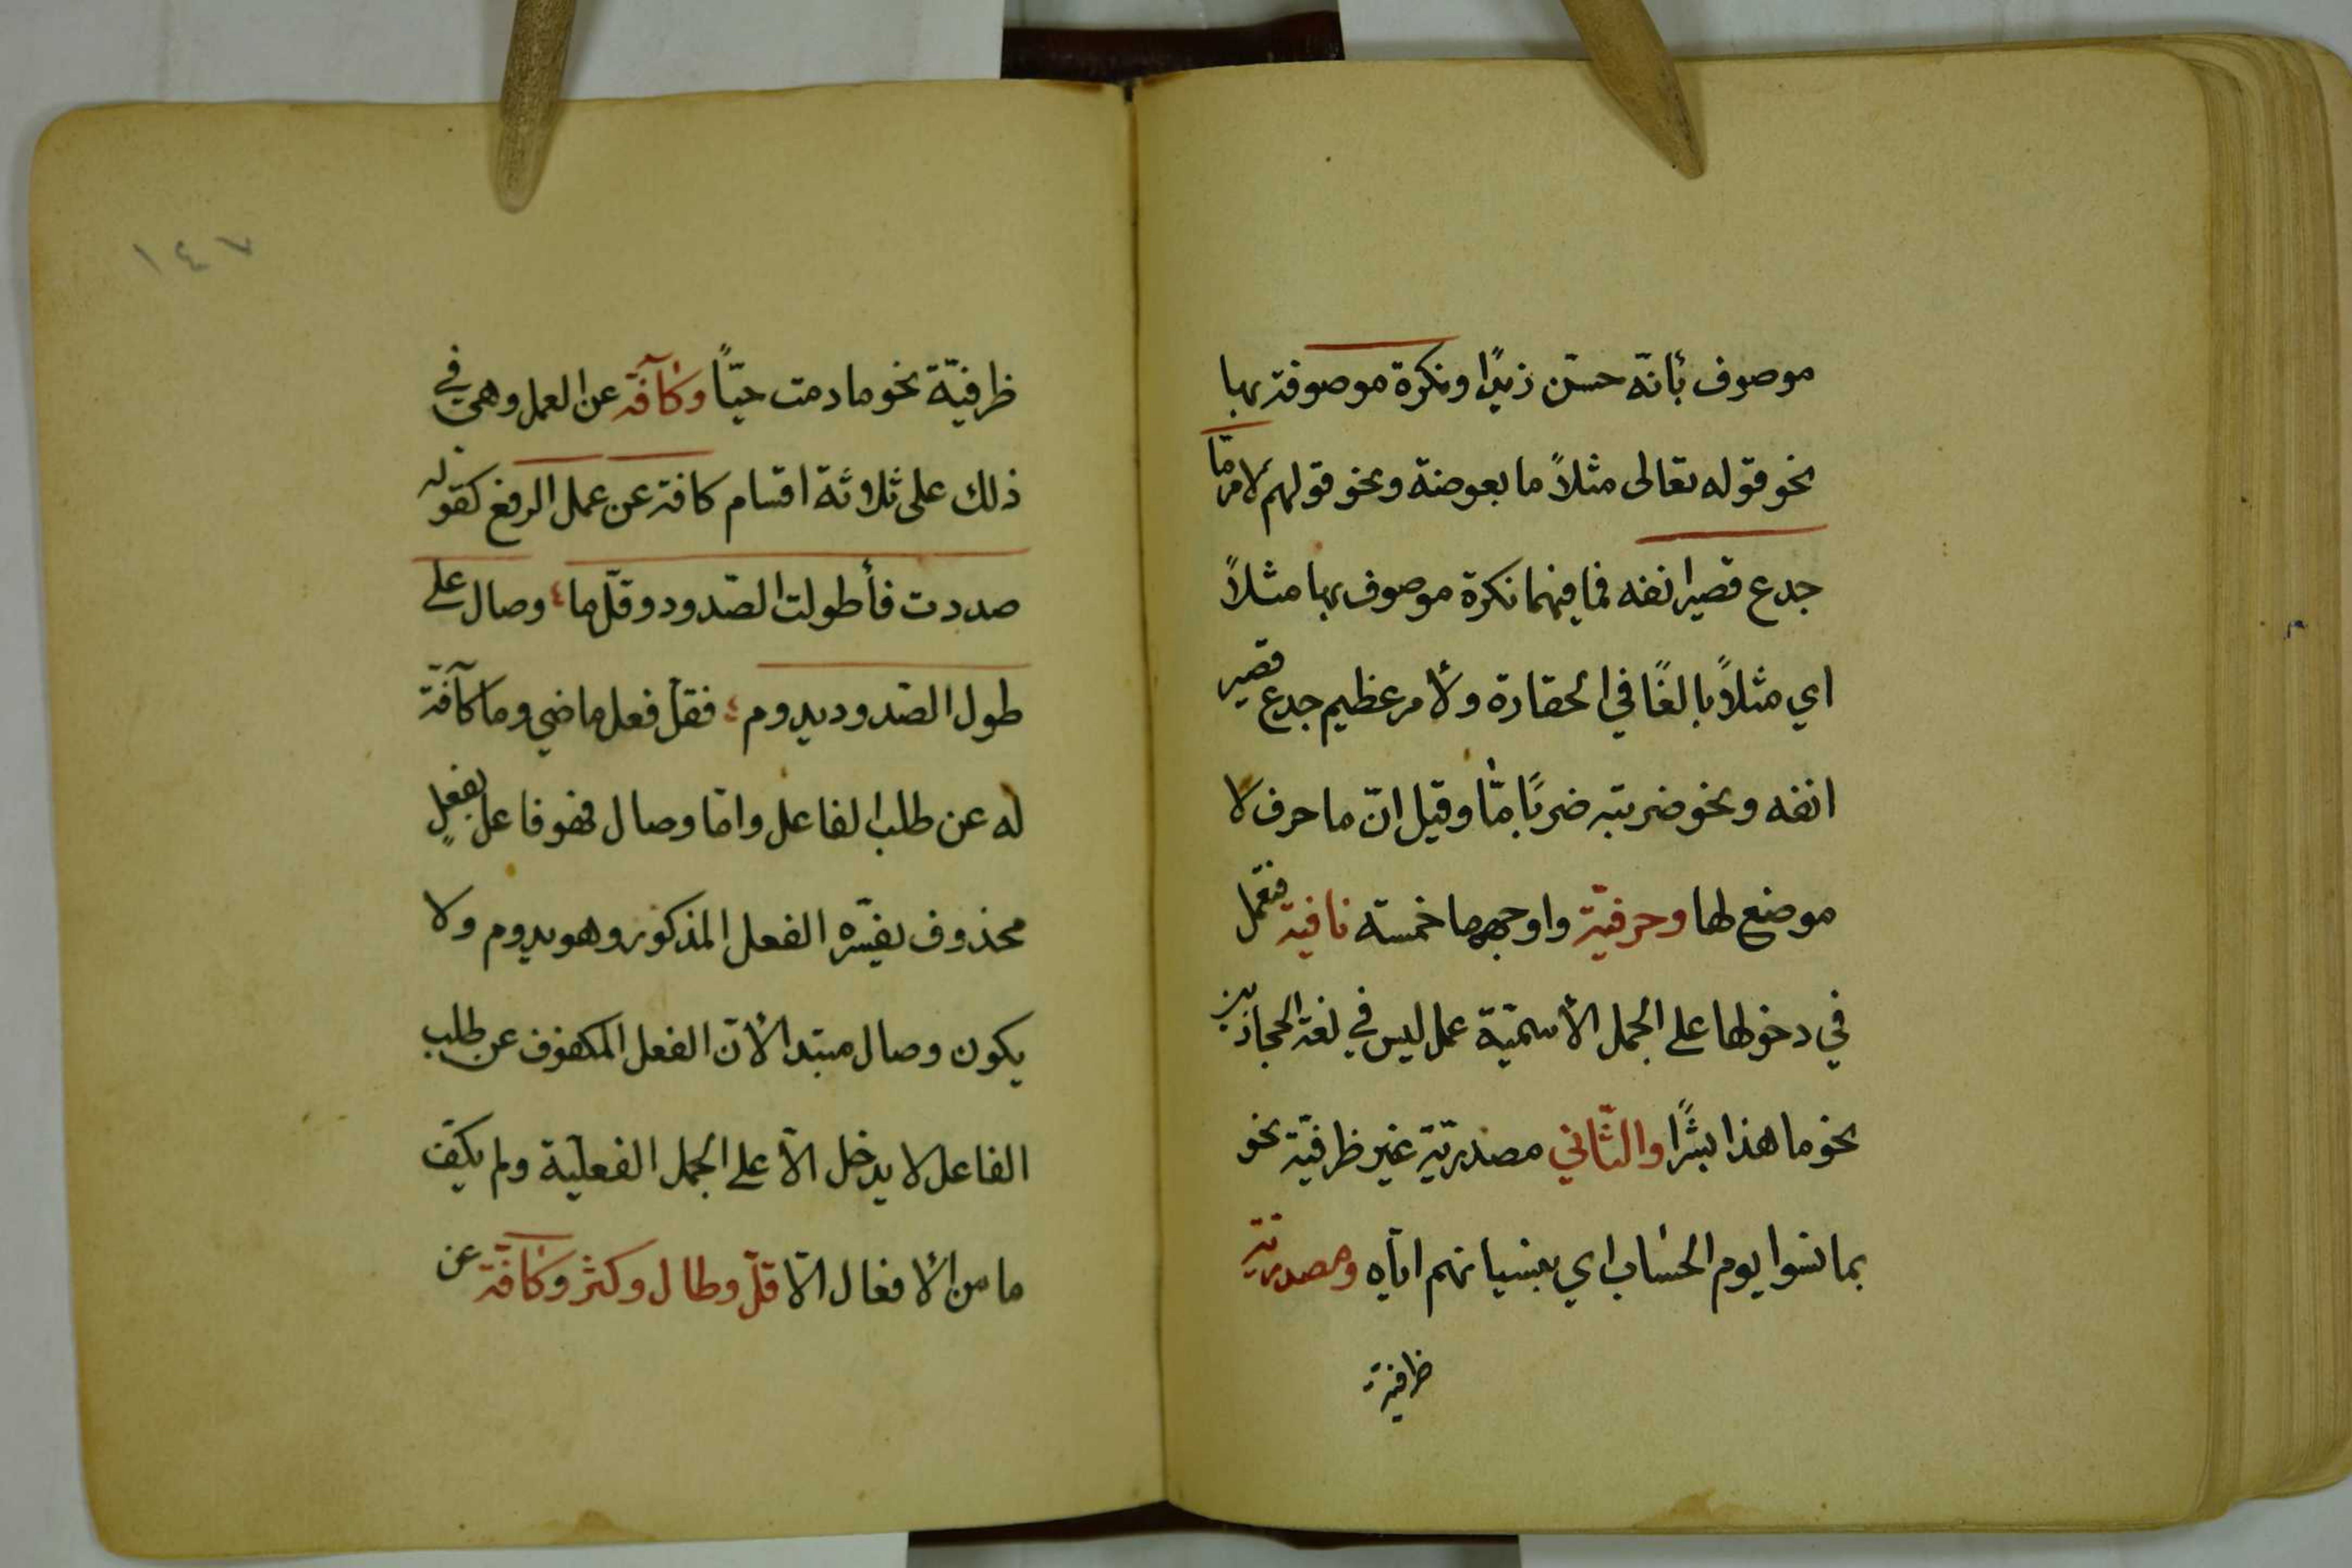 موصوف بأنّه حسّن زيدًا ونكرة موصوفة بها
نحو قوله تعالى مثلاً ما بعوضة ونحو قولهم لامر ما
جدع قصير انفه فما فيهما نكرة موصوف بها مثلاً
اي مثلاً بالغًا في الحقارة ولأمر عظيم جدع قصير
انفه ونحو ضربته ضربًا مّا وقيل انّ ما حرف لا
موضع لها وحرفيّة واوجهها خمسة نافية فتعمل
في دخولها على الجمل الأسميّة عمل ليس في لغة الحجازيين
نحو ما هذا بشرًا والثّاني مصدريّة غير ظرفيّة نحو
بما نسوا يوم الحساب اي بنسيانهم ايّاه ومصدريّة
ظرفية
١٤٧
ظرفيّة نحو ما دمت حيّاً وكآفة عن العمل وهي في
ذلك على ثلاثة اقسام كافة عن عمل الرفع كقوله
صددت فأطولت الصّدود وقلّما وصال على
طول الصّدود يدوم فقلّ فعل ماضي وما كآفّة
له عن طلب الفاعل وامّا وصال فهو فاعل بفعلٍ
محذوف يفسّره الفعل المذكور وهو يدوم ولا
يكون وصال مبتدا لأنّ الفعل المكفوف عن طلب
الفاعل لا يدخل الاّ على الجمل الفعليّة ولم يكفّ
ما من الأفعال الاّ قلّ وطال وكثر وكافّة عن